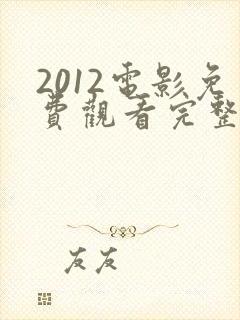 2012電影免
費觀看完整
友友